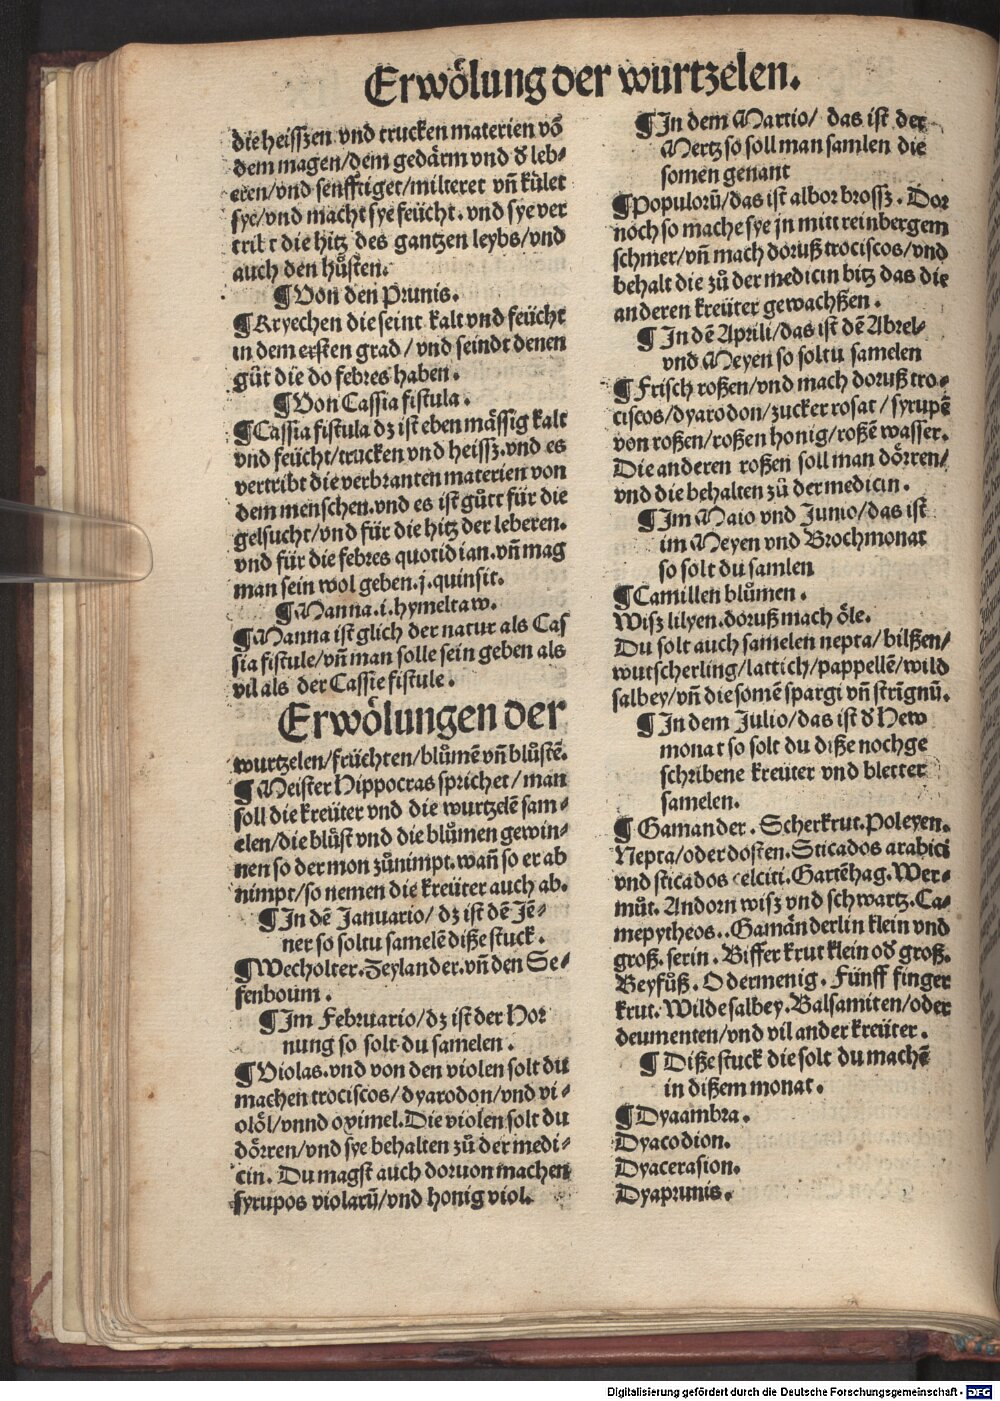 Erwölung der wurtzelen.
die heisszen vnd trucken materien võ
dem magen/dem gedärm vnd d̕ leb⸗
eren/vnd senfftiget/milteret vñ kület
sye/vnd macht sye feücht. vnd sye ver
die hitz des gantzen leybs/vnd
auch den hůsten.
¶Von den Prunis.
¶Kryechen die seint kalt vnd feücht
in dem ersten grad/vnd seindt denen
gůt die do febres haben.
¶Von Cassia fistula.
¶Cassia fistula dz ist eben mässig kalt
vnd feücht/trucken vnd heissz. vnd es
vertribt die verbranten materien von
dem menschen. vnd es ist gůtt für die
gelsucht/vnd für die hitz der leberen.
vnd für die febres quotidian. vñ mag
man sein wol geben. j. quinsit.
¶Manna. i. hymeltaw.
¶Manna ist glich der natur als Cas
sia fistule/vñ man solle sein geben als
vil als der Cassie fistule.
Erwölungen der
wurtzelen/früchten/blůmē vñ blůstē.
¶Meister Hippocras sprichet/man
soll die kreüter vnd die wurtzelē sam⸗
elen/die blůst vnd die blůmen gewin⸗
nen so der mon zůnimpt. wañ so er ab
nimpt/so nemen die kreüter auch ab.
¶In dē Januario/dz ist dē Jē⸗
ner so soltu samelē diße stuck.
¶Wecholter. Zeylander. vñ den Se⸗
fenboum.
¶Im Februario/dz ist der Hor
nung so solt du samelen.
¶Violas. vnd von den violen solt du
machen trociscos/dyarodon/vnd vi⸗
olöl/vnnd oximel. Die violen solt du
dörren/vnd sye behalten zů der medi⸗
cin. Du magst auch doruon machen
syrupos violarū/vnd honig viol.
¶In dem Martio/das ist der
Mertz so soll man samlen die
somen genant
¶Populorū/das ist albor brossz. Dor
noch so mache sye jn mitt reinbergem
schmer/vñ mach doruß trociscos/vnd
behalt die zů der medicin bitz das die
anderen kreüter gewachßen.
¶In dē Aprili/das ist dē Abrel⸗
vnd Meyen so soltu samelen
¶Frisch roßen/vnd mach doruß tro⸗
ciscos/dyarodon/zucker rosat/syrupē
von roßen/roßen honig/roßē wasser.
Die anderen roßen soll man dörren/
vnd die behalten zů der medicin.
¶Im Maio vnd Junio/das ist
im Meyen vnd Brochmonat
so solt du samlen
¶Camillen blůmen.
Wisz lilyen. doruß mach öle.
Du solt auch samelen nepta/bilßen/
wutscherling/lattich/pappellē/wild
salbey/vñ die somē spargi vñ strīgnū.
¶In dem Julio/das ist d̕ Hew
monat so solt du diße nochge
schribene kreüter vnd bletter
samelen.
¶Gamander. Scherkrut. Poleyen.
Nepta/oder dosten. Sticados arabici
vnd sticados celciti. Gartēhag. Wer⸗
můt. Andorn wisz vnd schwartz. Ca⸗
mepytheos.. Gamänderlin klein vnd
groß. serin. Biffer krut klein od̕ groß.
Beyfůß. Odermenig. Fünff finger
krut. Wilde salbey. Balsamiten/oder
deumenten/vnd vil ander kreüter.
¶Diße stuck die solt du machē
in dißem monat.
¶Dyaambra.
Dyacodion.
Dyacerasion.
Dyaprunis.
Digitalisierung gefördert durch die Deutsche Forschungsgemeinschaft - DFG